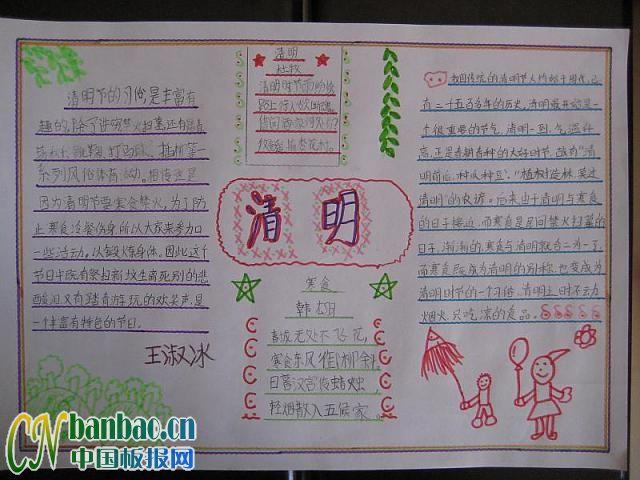 清明节的习俗是丰富有
趣的,除了讲究禁火扫墓,还有踏青
荡秋千、蹴鞠、打马球、插柳等一
系列风俗体育活动。相传这是
因为清明节要寒食禁火,为了防
止寒食冷餐伤身,所以大家来参加
一些活动,以锻炼身体。因此,这个
节日中既有祭扫新坟生离死别的悲
酸泪,又有踏青游玩的欢笑声,是
一个丰富有特色的节日。
王淑冰
清明
杜牧
清明时节雨纷纷
路上行人欲断魂
借问酒家何处有
牧童遥指杏花村
清明
寒食
韩翃
春城无处不飞花,
寒食东风御柳斜。
日暮汉宫传蜡烛,
轻烟散入五侯家。
我国传统的清明节大约始于周代,已
有二千五百多年的历史。清明最开始是一
个很重要的节气,清明一到,气温升
高,正是春耕春种的大好时节,故有“清
明前后,种瓜种豆”。“植树造林,莫过
清明”的农谚。后来由于清明与寒食
的日子接近,而寒食是民间禁火扫墓的
日子,渐渐的,寒食与清明就合二为一了,
而寒食既成为清明的别称,也变成为
清明时节的一个习俗,清明之日不动
烟火,只吃凉的食品。
CN banbao.cn
中国板报网